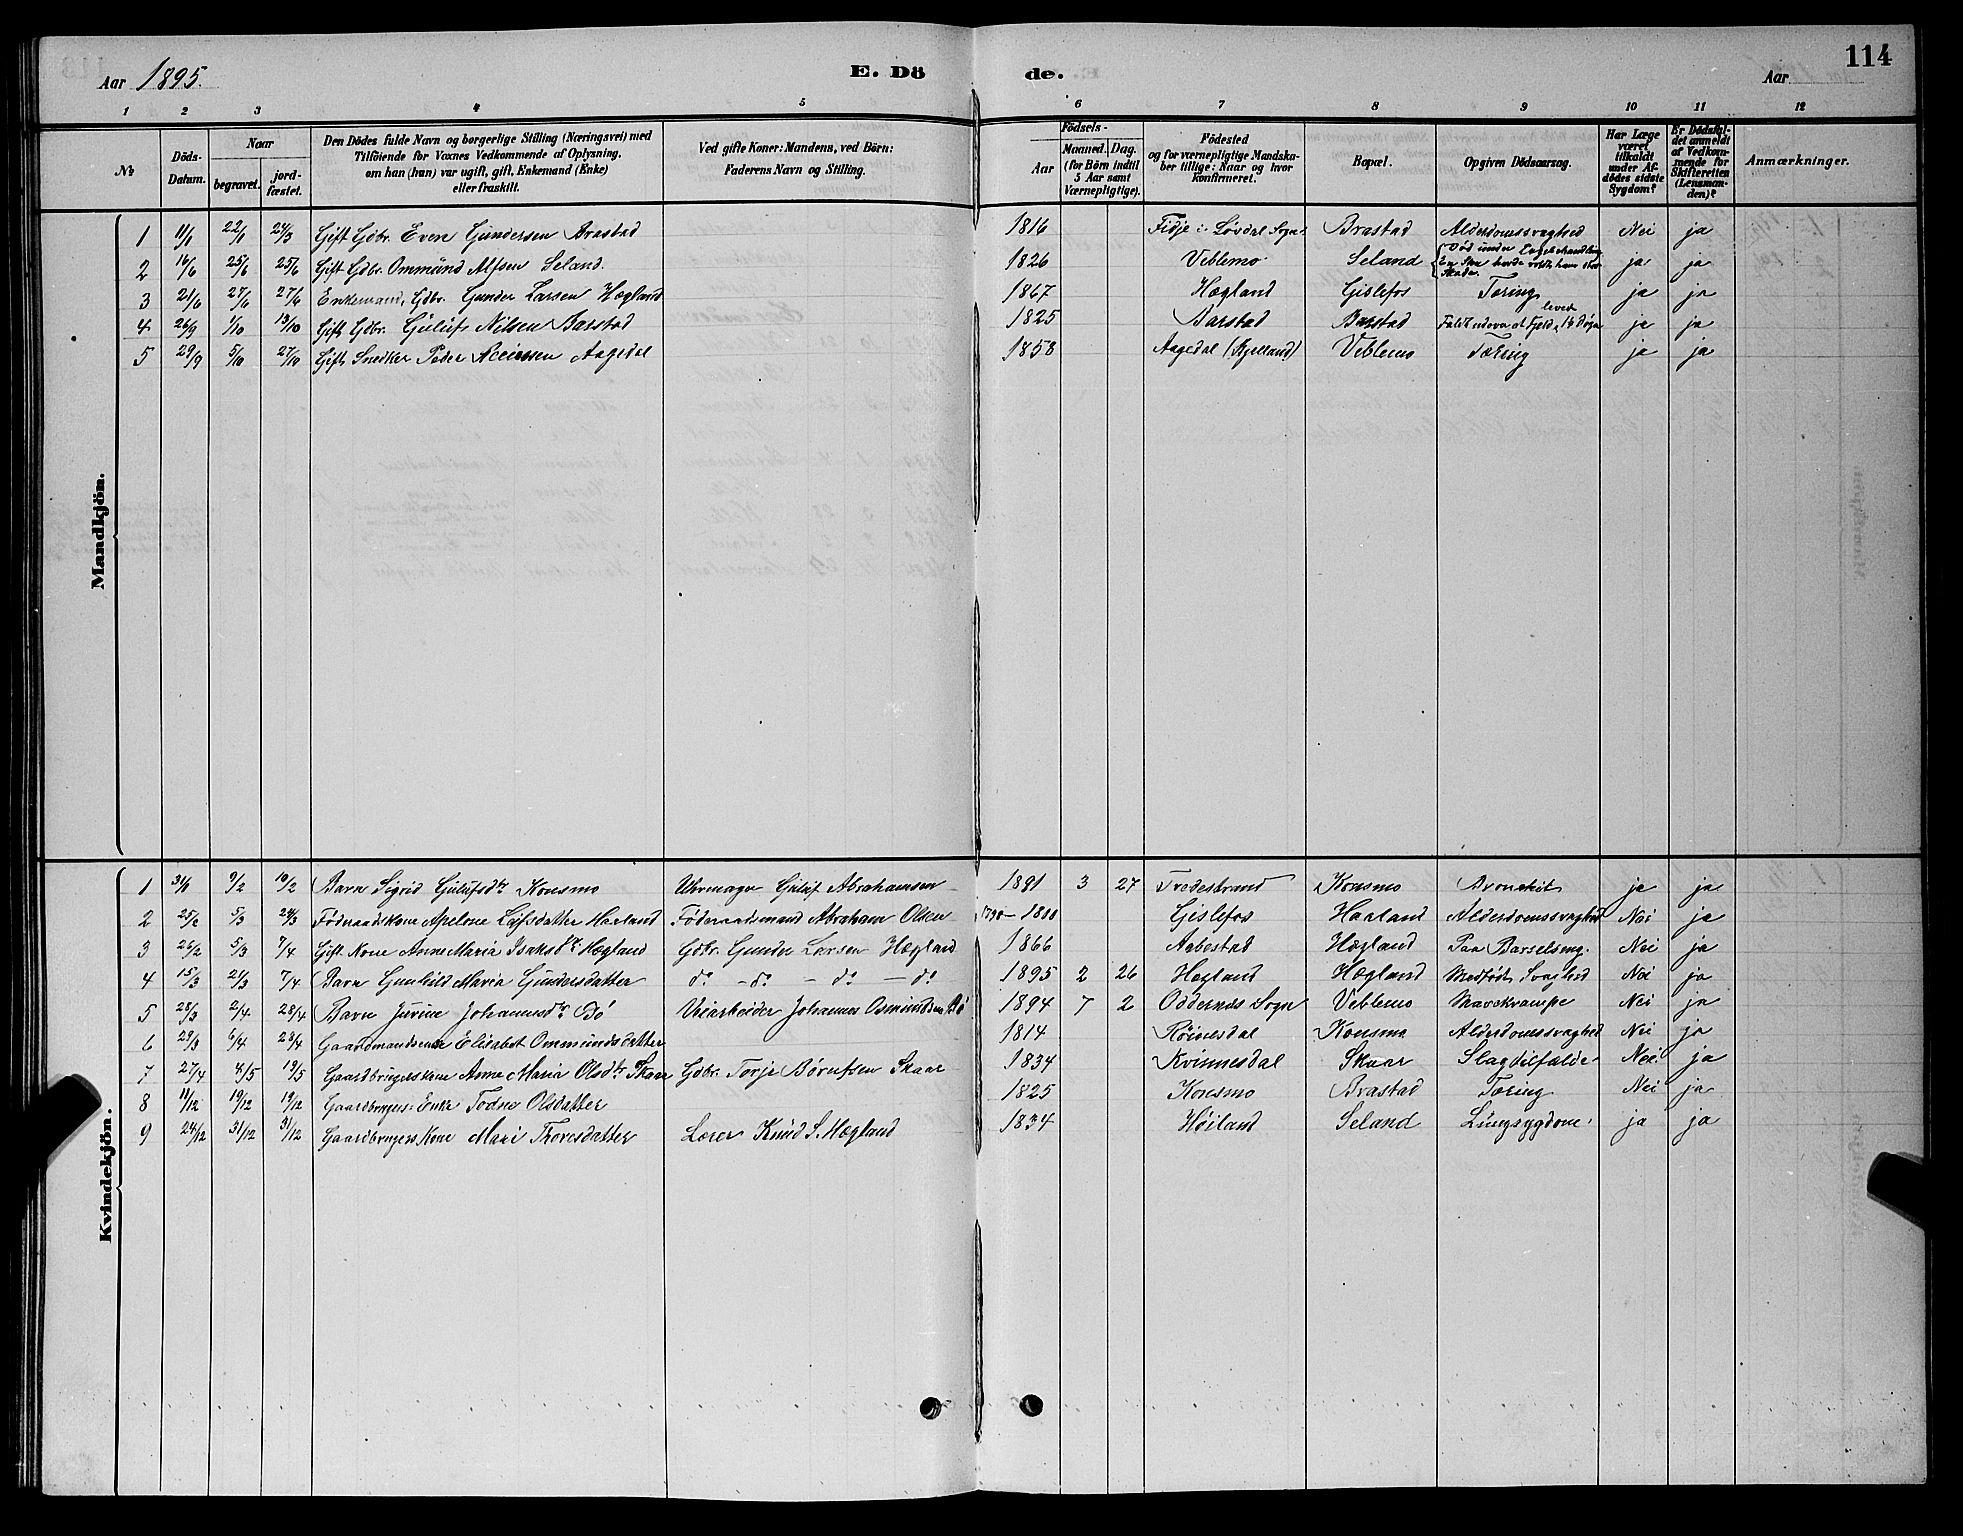 Aar 1895. E. Dö de. Aar 114
1 2 3 4 5 6 7 8 9 10 11 12
№
Döds-Datum.
Naar begravet. jordfæstet.
Den Dödes fulde Navn og borgerlige Stilling (Næringsvei) med Tilföiende for Voxnes Vedkommende af Oplysning, om han (hun) var ugift, gift, Enkemand (Enke) eller fraskilt.
Ved gifte Koner: Mandens, ved Börn: Faderens Navn og Stilling.
Födsels- Aar Maaned. Dag. (for Börn indtil 5 Aar samt Værnepligtige).
Födested og for værnepligtige Mandskaber tillige: Naar og hvor konfirmeret.
Bopæl.
Opgiven Dödsaarsag.
Har Læge været tilkaldt under Afdödes sidste Sygdom?
Er Dödsfaldet anmeldt af Vedkommende for Skifteretten (Lensmanden)?
Anmærkninger.
Mandkjön.
1 11/1 22/1 24/3 Gift Gdbr. Even Gundersen Brastad 1816 Fidje i Løvdal Sogn Brastad Alderdomssvaghed Nei ja
2 16/6 25/6 25/6 Gift Gdbr. Ommund Alfsen Seland. 1826 Veblemo Seland Død under Lægebehandling ja ja
3 21/6 27/6 27/6 Enkemand, Gdbr. Gunder Larsen Hægland 1867 Hægland Gislefos Tæring ja ja
4 26/9 1/10 13/10 Gift Gdbr. Guluf Nilsen Barstad 1825 Barstad Barstad Faldt udover et Fjeld, levede 1½ Døgn ja ja
5 29/9 5/10 27/10 Gift Snedker Peder Aagedal 1858 Aagedal (Bjelland) Veblemo Tæring ja ja
Kvindekjön.
1 31/1 9/2 10/2 Barn Sigrid Gulufsdtr Konsmo Uhrmager Guluf Abrahamsen 1891 3 27 Tvedestrand Konsmo Bronchit ja ja
2 25/2 5/3 24/3 Føderaadskone Apelone Leifsdatter Haaland Føderaadsmand Abraham Olsen 1798 – 1800 Gislefos Haaland Alderdomssvaghed Nei ja
3 26/2 5/3 7/4 Gift Kone Anne Maria Isaksdtr Hægland Gdbr. Gunder Larsen Hægland 1866 Aabestad Hægland Paa Barselseng. Nei ja
4 15/3 21/3 7/4 Barn Gunhild Maria Gundersdatter do – do – do – do 1895 2 26 Hægland Hægland Medfødt Svaghed Nei ja
5 28/3 2/4 28/4 Barn Jurine Johannesdtr Bø Veiarbeider Johannes Osmundsen Bø 1894 7 2 Oddernæs Sogn Veblemo Mavekrampe Nei ja
6 29/3 6/4 28/4 Gaardmandsenke Elisabet Ommundsdatter 1814 Røinesdal Konsmo Alderdomssvaghed Nei ja
7 27/4 8/5 19/5 Gaardbrugerskone Anne Maria Olsdtr Skaar Gdbr. Torje Børufsen Skaar 1834 Kvinnesdal Skaar Slagtilfælde Nei ja
8 11/12 19/12 19/12 Gaardbrugers Enke Todne Olsdatter 1825 Konsmo Brastad Tæring Nei ja
9 24/12 31/12 31/12 Gaardbrugers Kone Mari Thoresdatter Lærer Knud S. Mægland 1834 Høiland Seland Lungsygdom ja ja